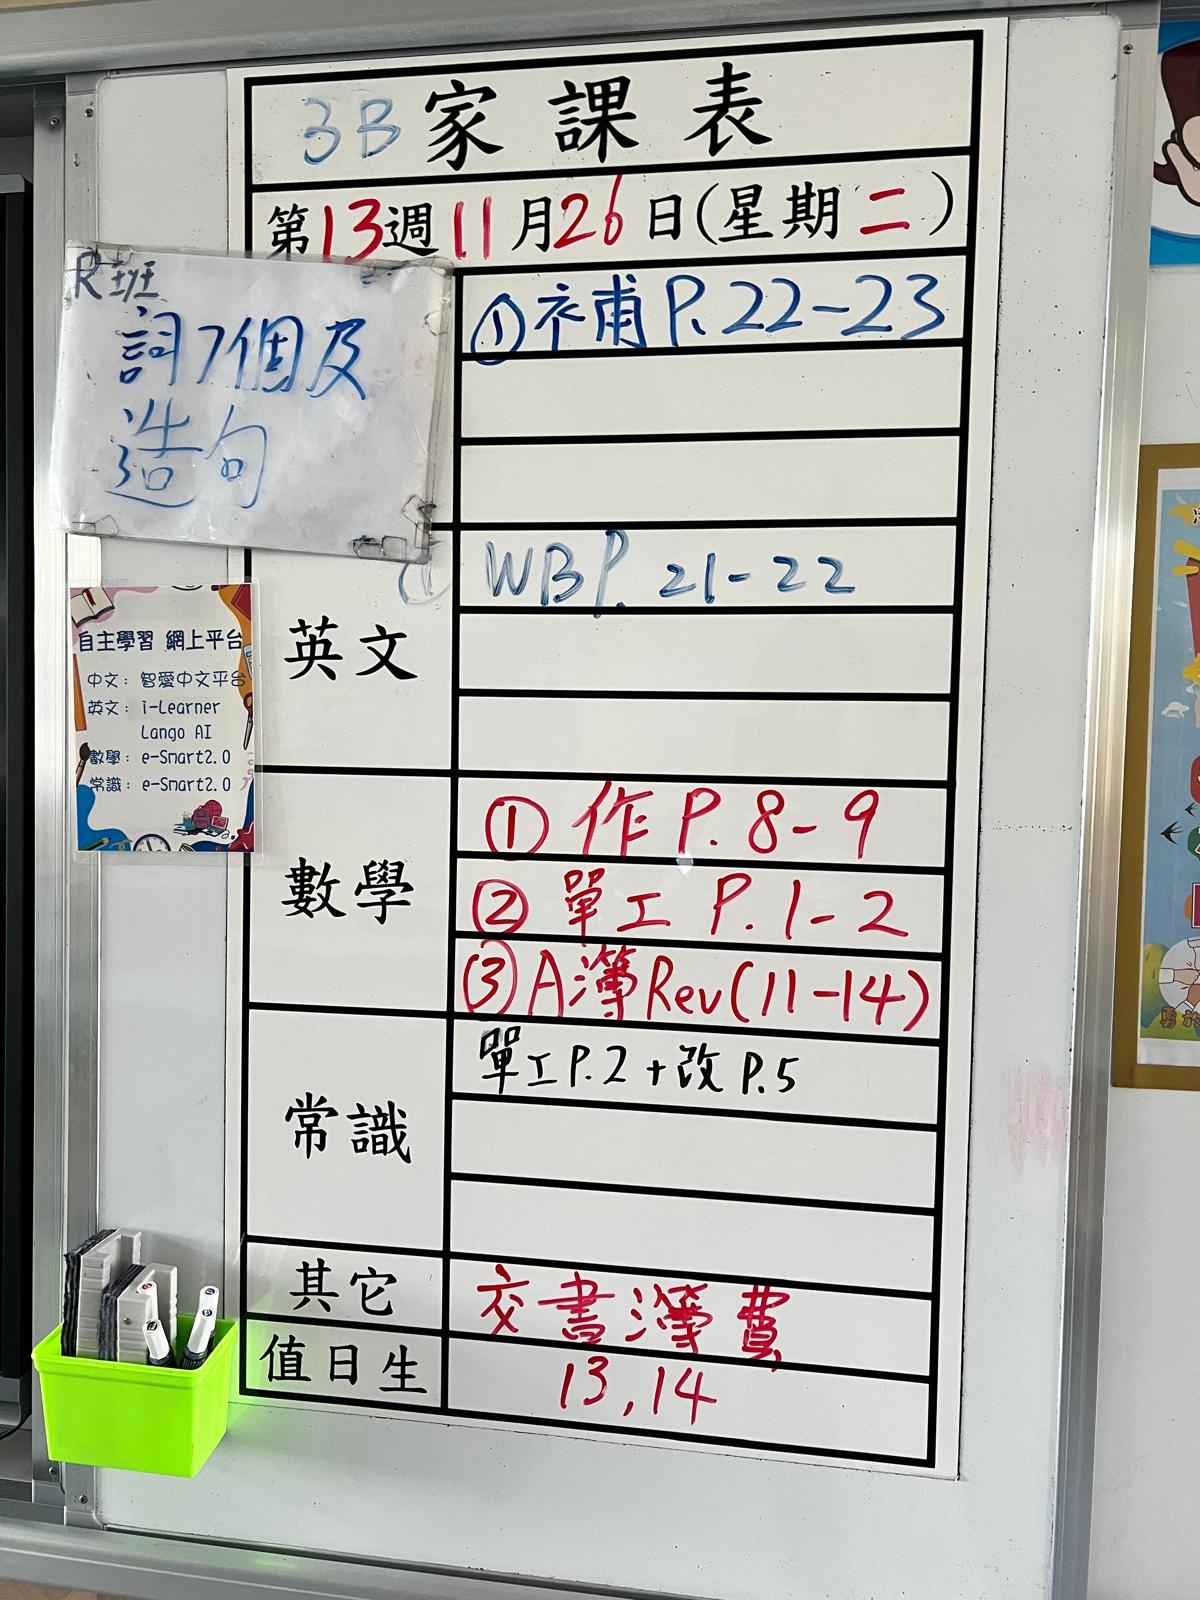 3B 家課表
第13週11月26日(星期二)
R班
詞7個及
造句
① 補 P. 22-23
① WB P. 21-22
英文
自主學習 網上平台
中文：智愛中文平台
英文：i-Learner
Lango AI
數學：e-Smart2.0
常識：e-Smart2.0
數學
① 作 P. 8-9
② 單工 P. 1-2
③ A簿 Rev (11-14)
常識
單工 P.2 + 改 P.5
其它
交書簿費
值日生
13, 14